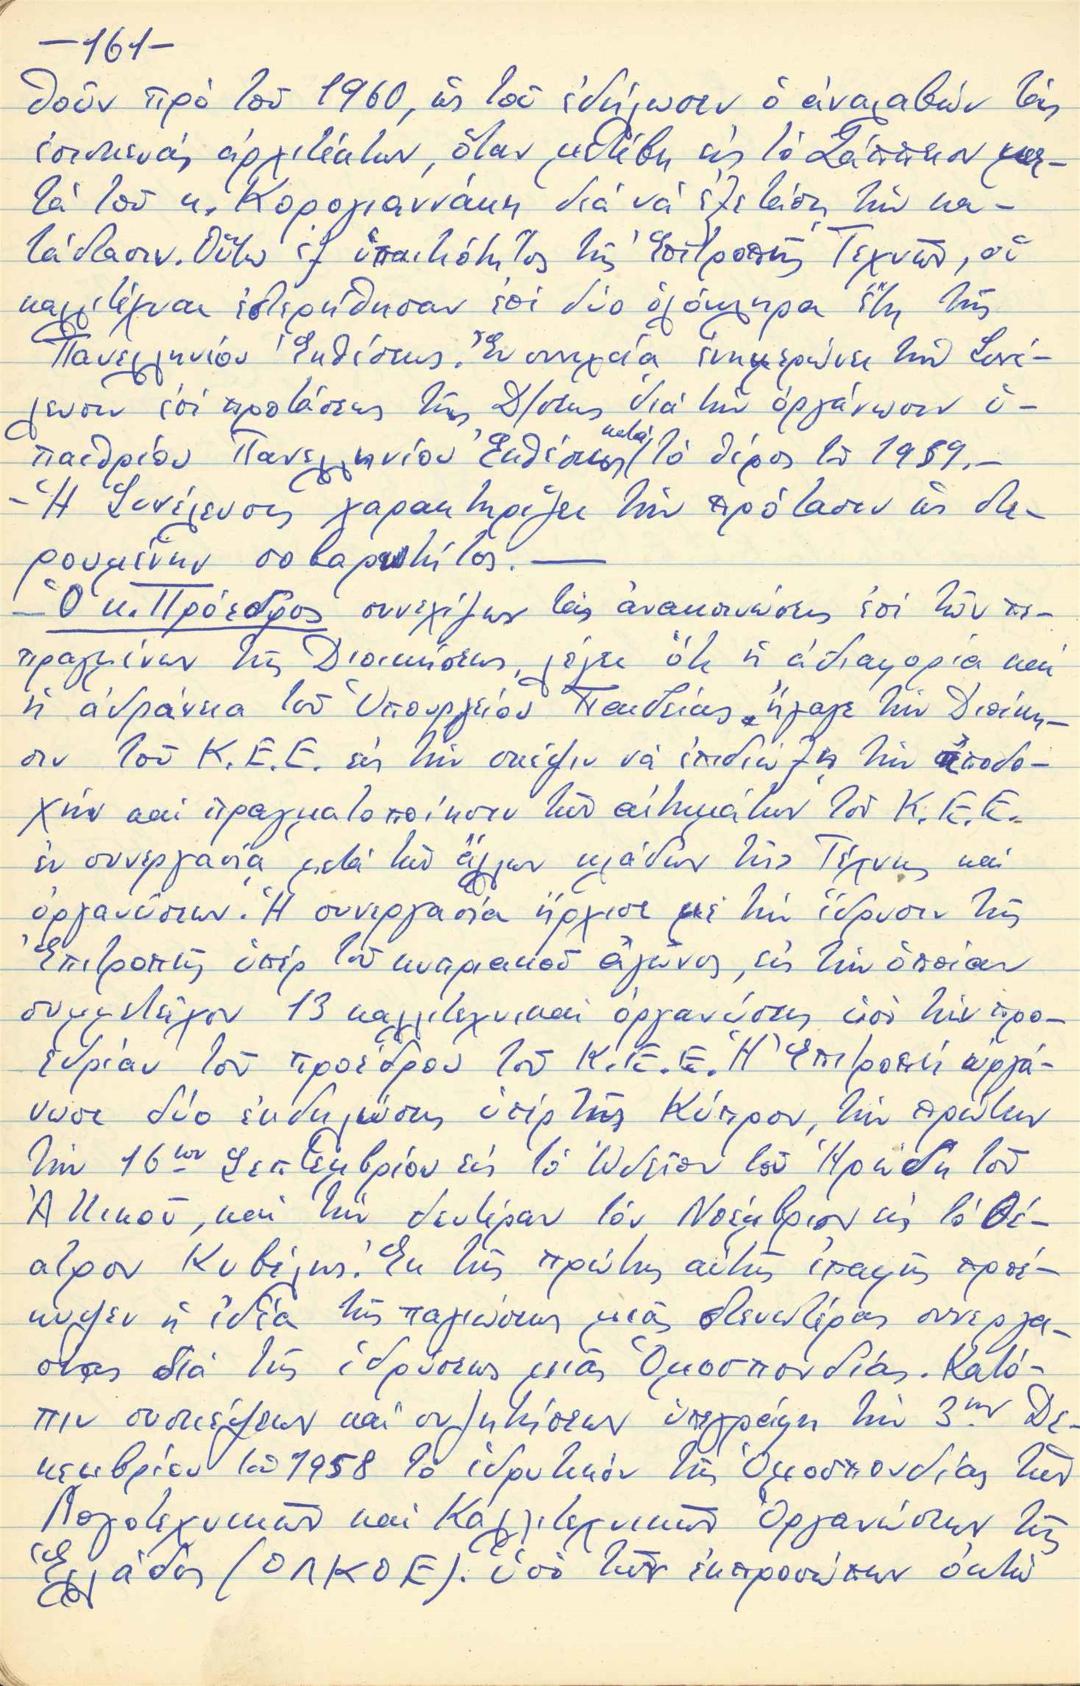 -161-
θοῦν πρό τοῦ 1960, ὡς τοῦ ἐδήλωσεν ὁ ἀναλαβών τάς
ἐπισκευάς ἀρχιτέκτων, ὅταν μετέβη εἰς τό Ζάππειον με-
τά τοῦ κ. Κορογιαννάκη διά νά ἐξετάση τήν κα-
τάστασιν. Οὕτω ἐξ ὑπαιτιότητος τῆς Ἐπιτροπῆς Τεχνῶν, οἱ
καλλιτέχναι ἐστερήθησαν ἐπί δύο ὁλόκληρα ἔτη τῆς
Πανελληνίου Ἐκθέσεως. Ἐν συνεχεία ἐνημερώνει τήν Συνέ-
λευσιν ἐπί προτάσεως τῆς Δ/σεως διά τήν ὀργάνωσιν ὑ-
παιθρίου Πανελληνίου Ἐκθέσεως κατά τό θέρος τοῦ 1959.-
-Ἡ Συνέλευσις χαρακτηρίζει τήν πρότασιν ὡς στε-
ρουμένην σοβαρότητος. —
-Ὁ κ. Πρόεδρος συνεχίζων τάς ἀνακοινώσεις ἐπί τῶν πε-
πραγμένων τῆς Διοικήσεως, λέγει ὅτι ἡ ἀδιαφορία καί
ἡ ἀδράνεια τοῦ Ὑπουργείου Παιδείας ἤγαγε τήν Διοίκη-
σιν τοῦ Κ.Ε.Ε. εἰς τήν σκέψιν νά ἐπιδιώξη τήν ἀποδο-
χήν καί πραγματοποίησιν τῶν αἰτημάτων τοῦ Κ.Ε.Ε.
ἐν συνεργασία μετά τῶν ἄλλων κλάδων τῆς Τέχνης καί
ὀργανώσεων. Ἡ συνεργασία ἤρχισε μέ τήν ἵδρυσιν τῆς
Ἐπιτροπῆς ὑπέρ τοῦ κυπριακοῦ ἀγῶνος, εἰς τήν ὁποίαν
συμμετεῖχον 13 καλλιτεχνικαί ὀργανώσεις ὑπό τήν προ-
εδρίαν τοῦ προέδρου τοῦ Κ.Ε.Ε. Ἡ Ἐπιτροπή ὠργά-
νωσε δύο ἐκδηλώσεις ὑπέρ τῆς Κύπρου, τήν πρώτην
τήν 16ην Σεπτεμβρίου εἰς τό Ὠδεῖον τοῦ Ἡρώδη τοῦ
Ἀττικοῦ, καί τήν δευτέραν τόν Νοέμβριον εἰς τό Θέ-
ατρον Κυβέλης. Ἐκ τῆς πρώτης αὐτῆς ἐπαφῆς προέ-
κυψεν ἡ ἰδέα τῆς παγιώσεως μιᾶς στενωτέρας συνεργα-
σίας διά τῆς ἱδρύσεως μιᾶς Ὁμοσπονδίας. Κατό-
πιν συσκέψεων καί συζητήσεων ὑπεγράφη τήν 3ην Δε-
κεμβρίου τοῦ 1958 τό ἱδρυτικόν τῆς Ὁμοσπονδίας τῶν
Λογοτεχνικῶν καί Καλλιτεχνικῶν Ὀργανώσεων τῆς
Ἑλλάδος (ΟΛΚΟΕ). ὑπό τῶν ἐκπροσώπων ὀκτώ